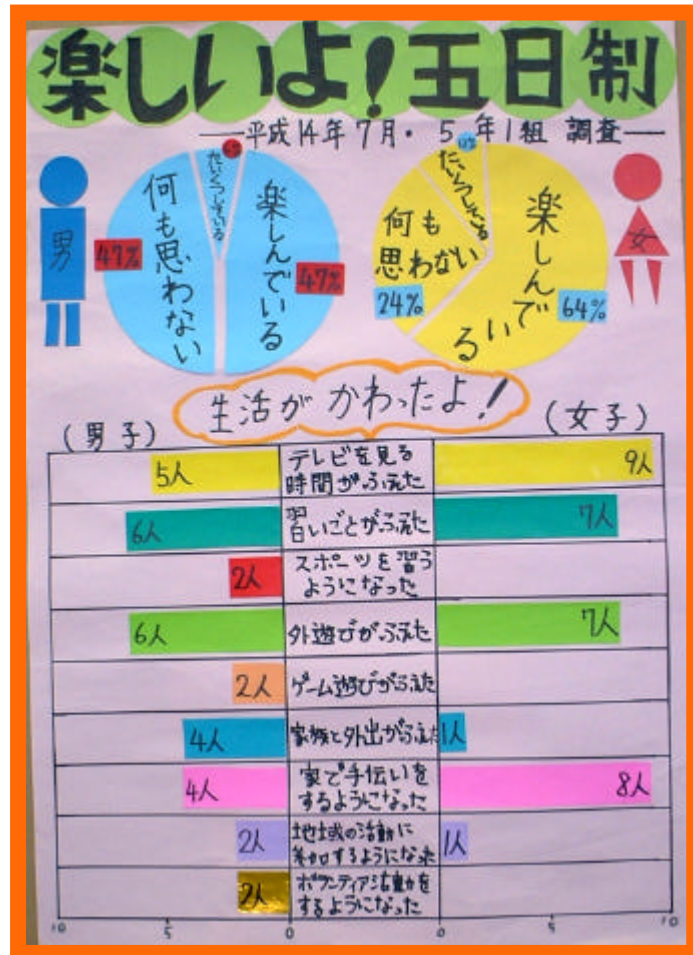 楽しいよ!五日制
―平成14年7月・5年1組 調査―
男
何も思わない
47%
たいくつしている
楽しんでいる
47%
何も思わない
24%
たいくつしている
楽しんでいる
64%
女
生活がかわったよ!
(男子)
(女子)
5人
テレビを見る
時間がふえた
9人
6人
習いごとがふえた
7人
2人
スポーツを習う
ようになった
6人
外遊びがふえた
7人
2人
ゲーム遊びがふえた
4人
家族と外出がふえた
1人
4人
家で手伝いを
するようになった
8人
2人
地域の活動に
参加するようになった
1人
2人
ボランティア活動を
するようになった
10 5 0 0 5 10